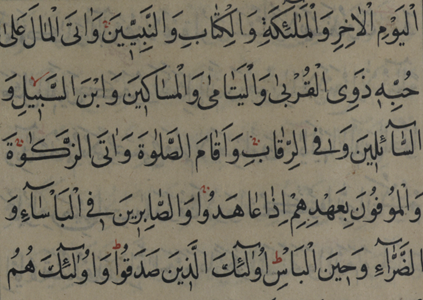 الْيَوْمِ الْاٰخِرِ وَالْمَلٰٓئِكَةِ وَالْكِتَابِ وَالنَّبِيّٖنَ وَاٰتَى الْمَالَ عَلٰى
حُبِّهٖ ذَوِى الْقُرْبٰى وَالْيَتَامٰى وَالْمَسَاكٖينَ وَابْنَ السَّبٖيلِ وَ
السَّٓائِلٖينَ وَفِى الرِّقَابِ وَاَقَامَ الصَّلٰوةَ وَاٰتَى الزَّكٰوةَ
وَالْمُوفُونَ بِعَهْدِهِمْ اِذَا عَاهَدُوا وَالصَّابِرٖينَ فِى الْبَأْسَٓاءِ وَ
الضَّرَّٓاءِ وَحٖينَ الْبَأْسِ اُولٰٓئِكَ الَّذٖينَ صَدَقُوا وَاُولٰٓئِكَ هُمُ